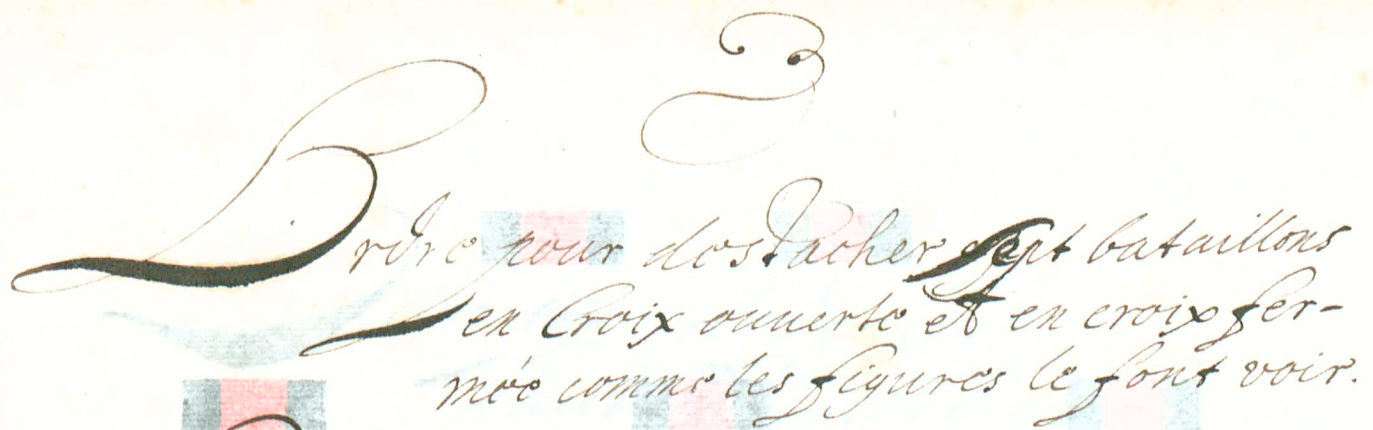 3
Ordre pour destacher sept bataillons
en Croix ouuerte et en croix fer-
mée comme les figures le font voir.